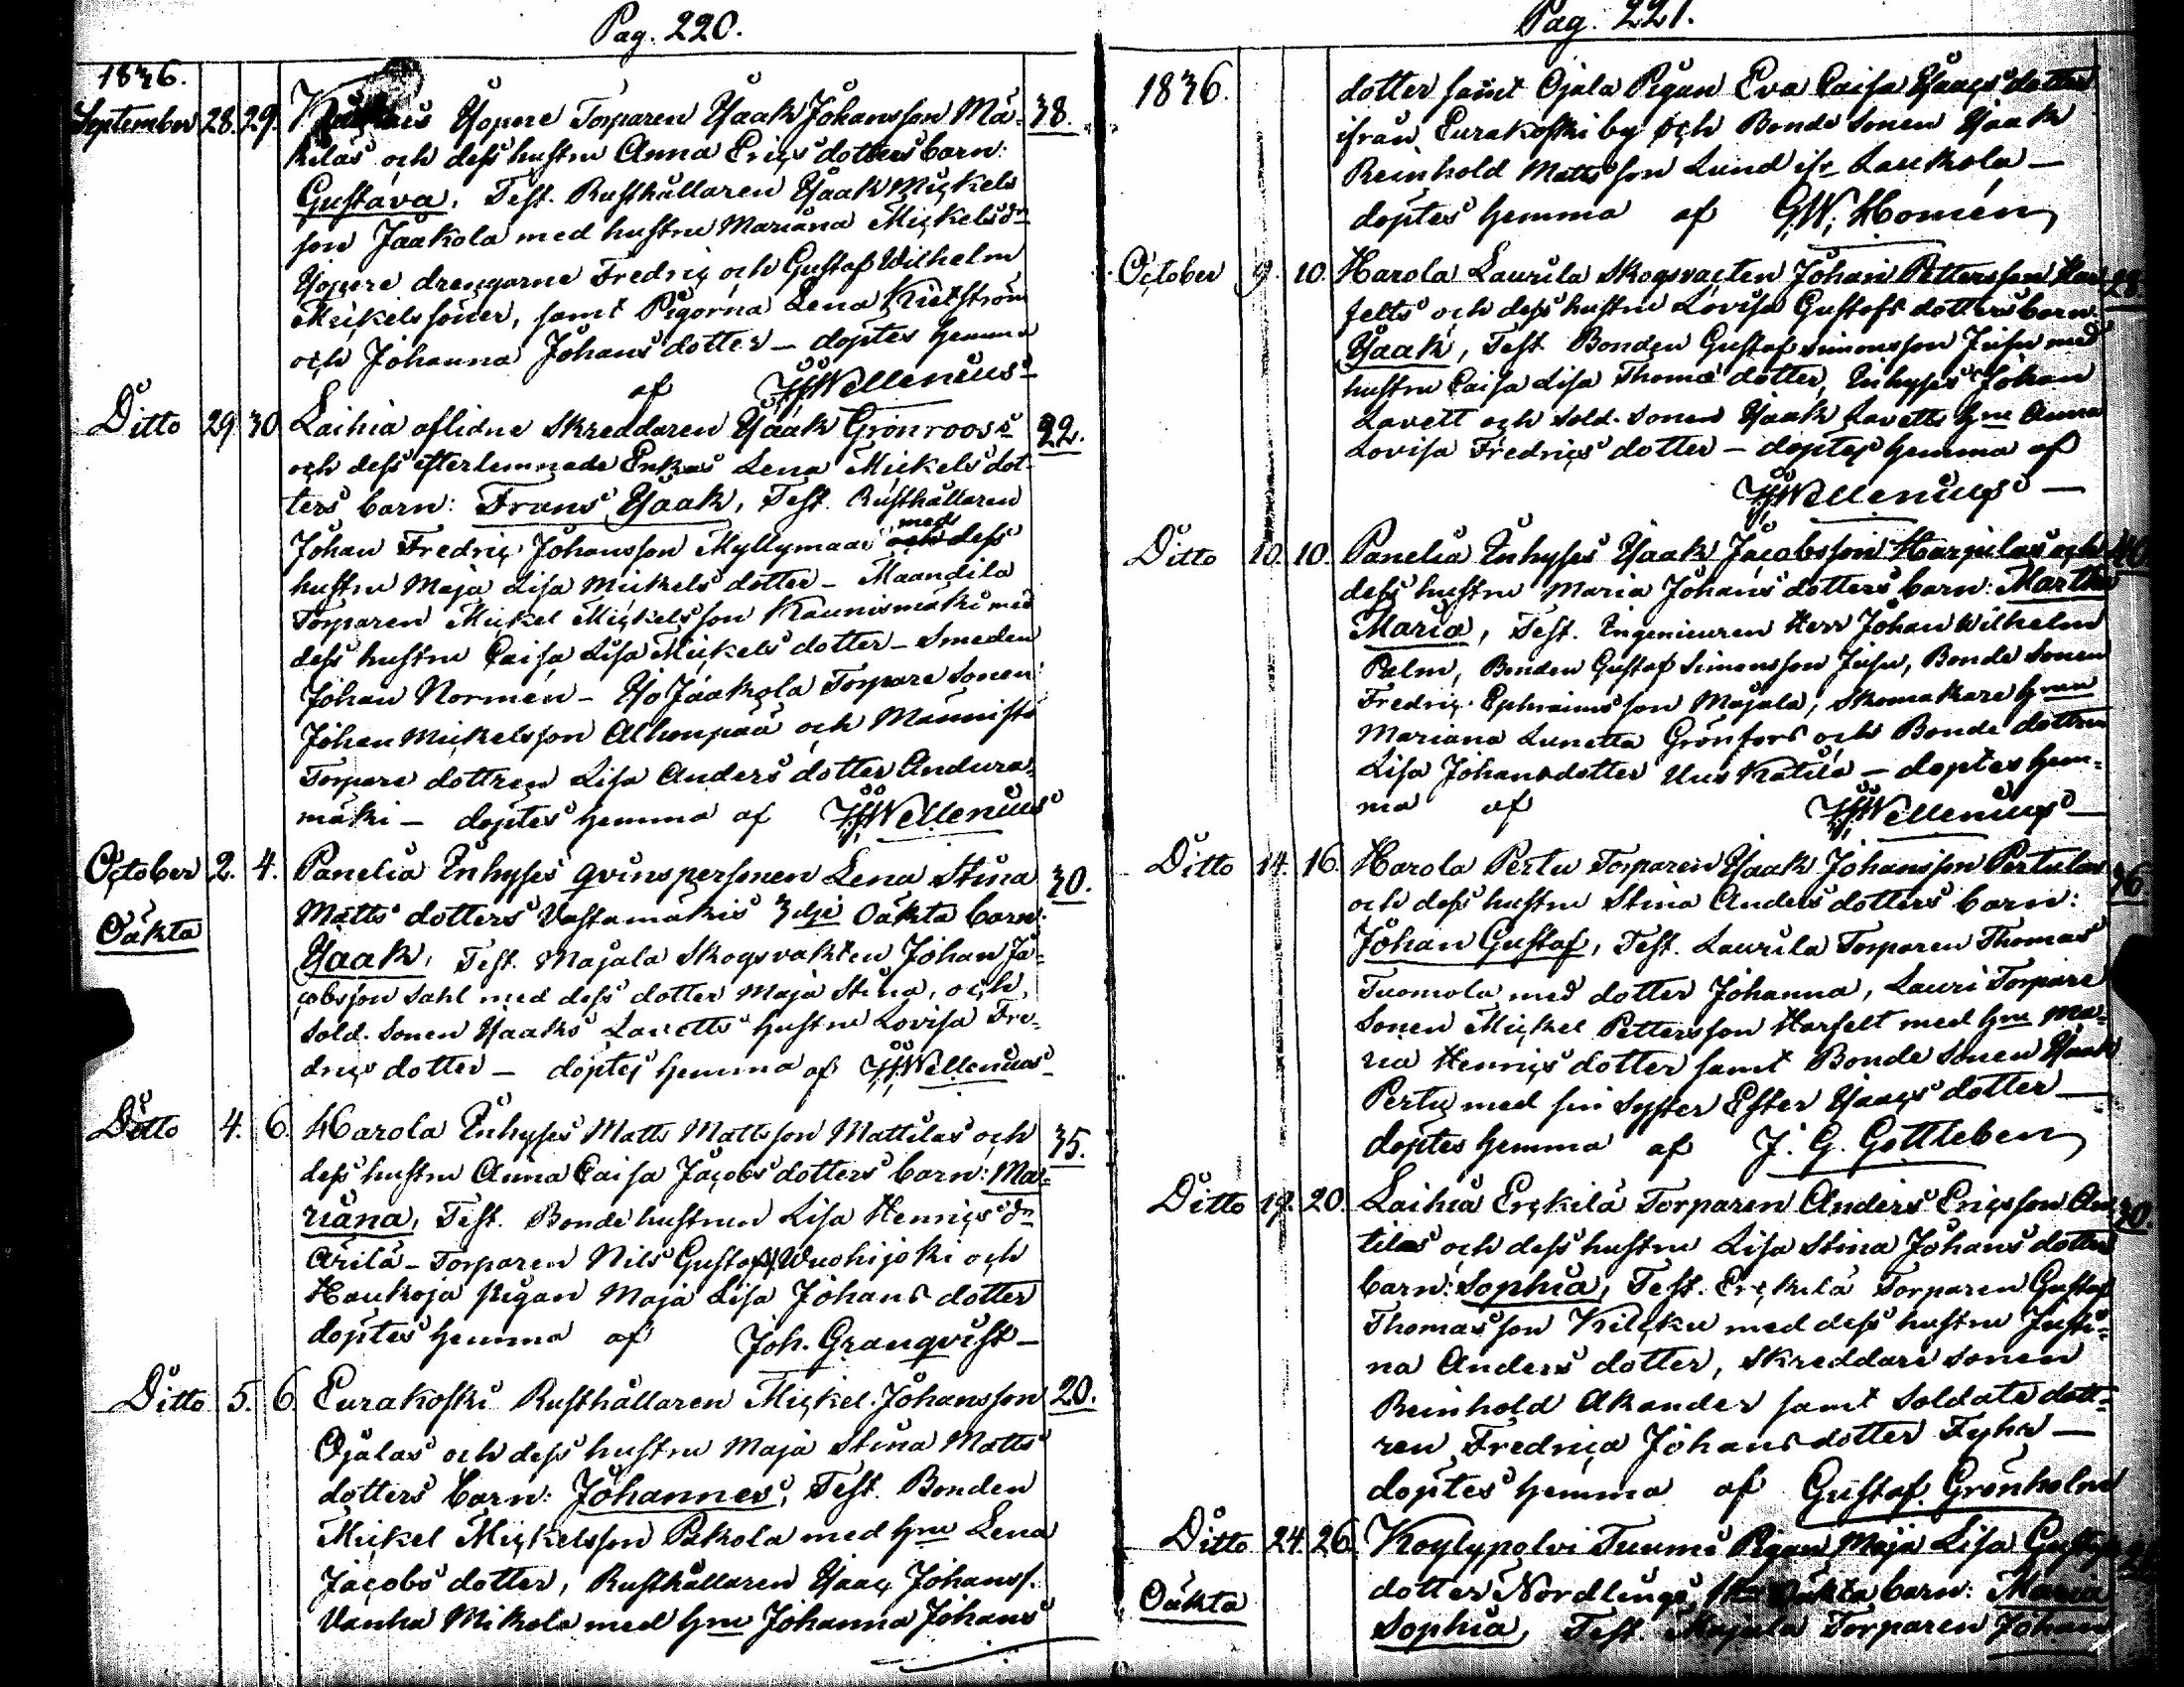 Pag. 220.
1836.
September 28. 29. Yopere Torparen Ysaak Johansson Mä= 38.
kiläs och dess hustru Anna Ericsdotters barn:
Gustava, Test. Rusthållaren Ysaak Mickels
son Jaakola med hustru Mariana Mickelsdr
Yopere drengarne Fredric och Gustaf Wilhelm
Mickelssöner, samt Pigorna Lena Kietström
och Johanna Johansdotter – döptes hemma
af HWellenius
Ditto 29 30 Laihia aflidne Skreddaren Ysaak Grönroos's 22.
och dess efterlemnade Enkas Lena Mickelsdot-
ters barn: Frans Ysaak, Test. Rusthållaren
Johan Fredric Johansson Myllymaa med dess
hustru Maja Lisa Mickelsdotter – Maandila
Torparen Mickel Mickelsson Kaunismäki med
dess hustru Caisa Lisa Mickelsdotter – Smeden
Johan Normén – Yso Jaakola Torpare Sonen
Johan Mickelsson Alhonpää och Männistö
Torpare dottren Lisa Andersdotter Andura=
mäki – döptes hemma af HWellenius
October 2. 4. Panelia Inhyses qvinspersonen Lena Stina 30.
Matts dotters Vastamäkis 3dje Oäkta barn:
Oäkta
Ysaak, Test. Majala Skogsvakten Johan Ja=
cobsson Sahl med dess dotter Maja Stina, och
Sold. Sonen Ysaaks Lavetts hustru Lovisa Fre=
drics dotter – döptes hemma af HWellenius
Ditto 4. 6. Harola Inhyses Matts Mattsson Mattilas och 35.
dess hustru Anna Caisa Jacobsdotters barn: Ma=
riana, Test. Bondehustrun Lisa Henricsdr
Ärilä – Torparen Nils Gustafs. Wuohijoki och
Haukoja pigan Maja Lisa Johansdotter
döptes hemma af Joh. Granqvist –
Ditto 5. 6 Eurakoski Rusthållaren Mickel Johansson 20.
Ojalas och dess hustru Maja Stina Matts
dotters barn: Johannes, Test. Bonden
Mickel Mickelsson Pakola med hru Lena
Jacobsdotter, Rusthållaren Ysaac Johanss.
Vanha Mikola med hru Johanna Johans
Pag. 221.
1836.
dotter samt Ojala Pigan Eva Caisa Ysaacsdotter
ifrån Eurakoski by och Bonde Sonen Ysaak
Reinhold Mattsson Lund ifr. Laukola –
döptes hemma af G.W. Homén
October 9. 10. Harola Laurila Skogsvacten Johan Pettersson Har 28
felts och dess hustru Lovisa Gustafs dotters barn
Ysaak, Test. Bonden Gustaf Simonsson Juse med
hustru Caisa Lisa Thomædotter, Inhyses Johan
Lavett och Sold. Sonen Ysaak Lavetts hru Anna
Lovisa Fredrics dotter – döptes hemma af
HWellenius –
Ditto 10. 10. Panelia Inhyses Ysaak Jacobsson Harjulas och 40.
dess hustru Maria Johans dotters barn: Martha
Maria, Test. Ingenieuren Herr Johan Wilhelm
Palm, Bonden Gustaf Simonsson Juse, Bonde Sonen
Fredric Ephraimsson Majala, Skomakare hrun
Mariana Lunetta Grönfors och Bonde dottren
Lisa Johansdotter Uus Katila – döptes hem=
ma af HWellenius –
Ditto 14. 16. Harola Pertu Torparen Ysaak Johansson Pertulas 36
och dess hustru Stina Andersdotters barn:
Johan Gustaf, Test. Laurila Torparen Thomas
Tuomola med dotter Johanna, Lauri Torpare
Sonen Mickel Pettersson Harfelt med hru Ma=
ria Henricsdotter samt Bonde Sonen Ysaak
Pertu med sin Syster Ester Ysaacsdotter –
döptes hemma af J. G. Gottleben
Ditto 19. 20. Laihia Erckilä Torparen Anders Ericsson An 30.
tilas och dess hustru Lisa Stina Johans dotter
barn: Sophia, Test. Erckilä Torparen Gustaf
Thomasson Kilcku med dess hustru Justi=
na Andersdotter, Skreddare Sonen
Reinhold Akander samt Soldate dott=
ren Fredrica Johansdotter Fyhr –
döptes hemma af Gustaf Grönholm
Ditto 24. 26. Köylypolvi Tuumi Pigan Maja Lisa Gustafs
dotter Nordlings Oäkta barn: Maria
Oäkta
Sophia, Test. Majala Torparen Johan